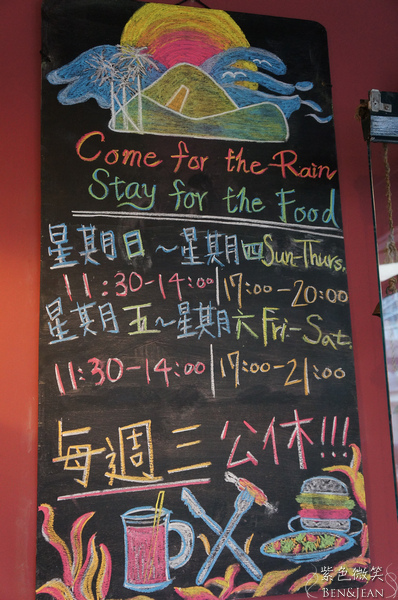 Come for the Rain
Stay for the Food
星期日～星期四 Sun-Thurs.
11:30-14:00 | 17:00-20:00
星期五～星期六 Fri-Sat.
11:30-14:00 | 17:00-21:00
每週三公休!!!
紫色微笑
BEN&JEAN